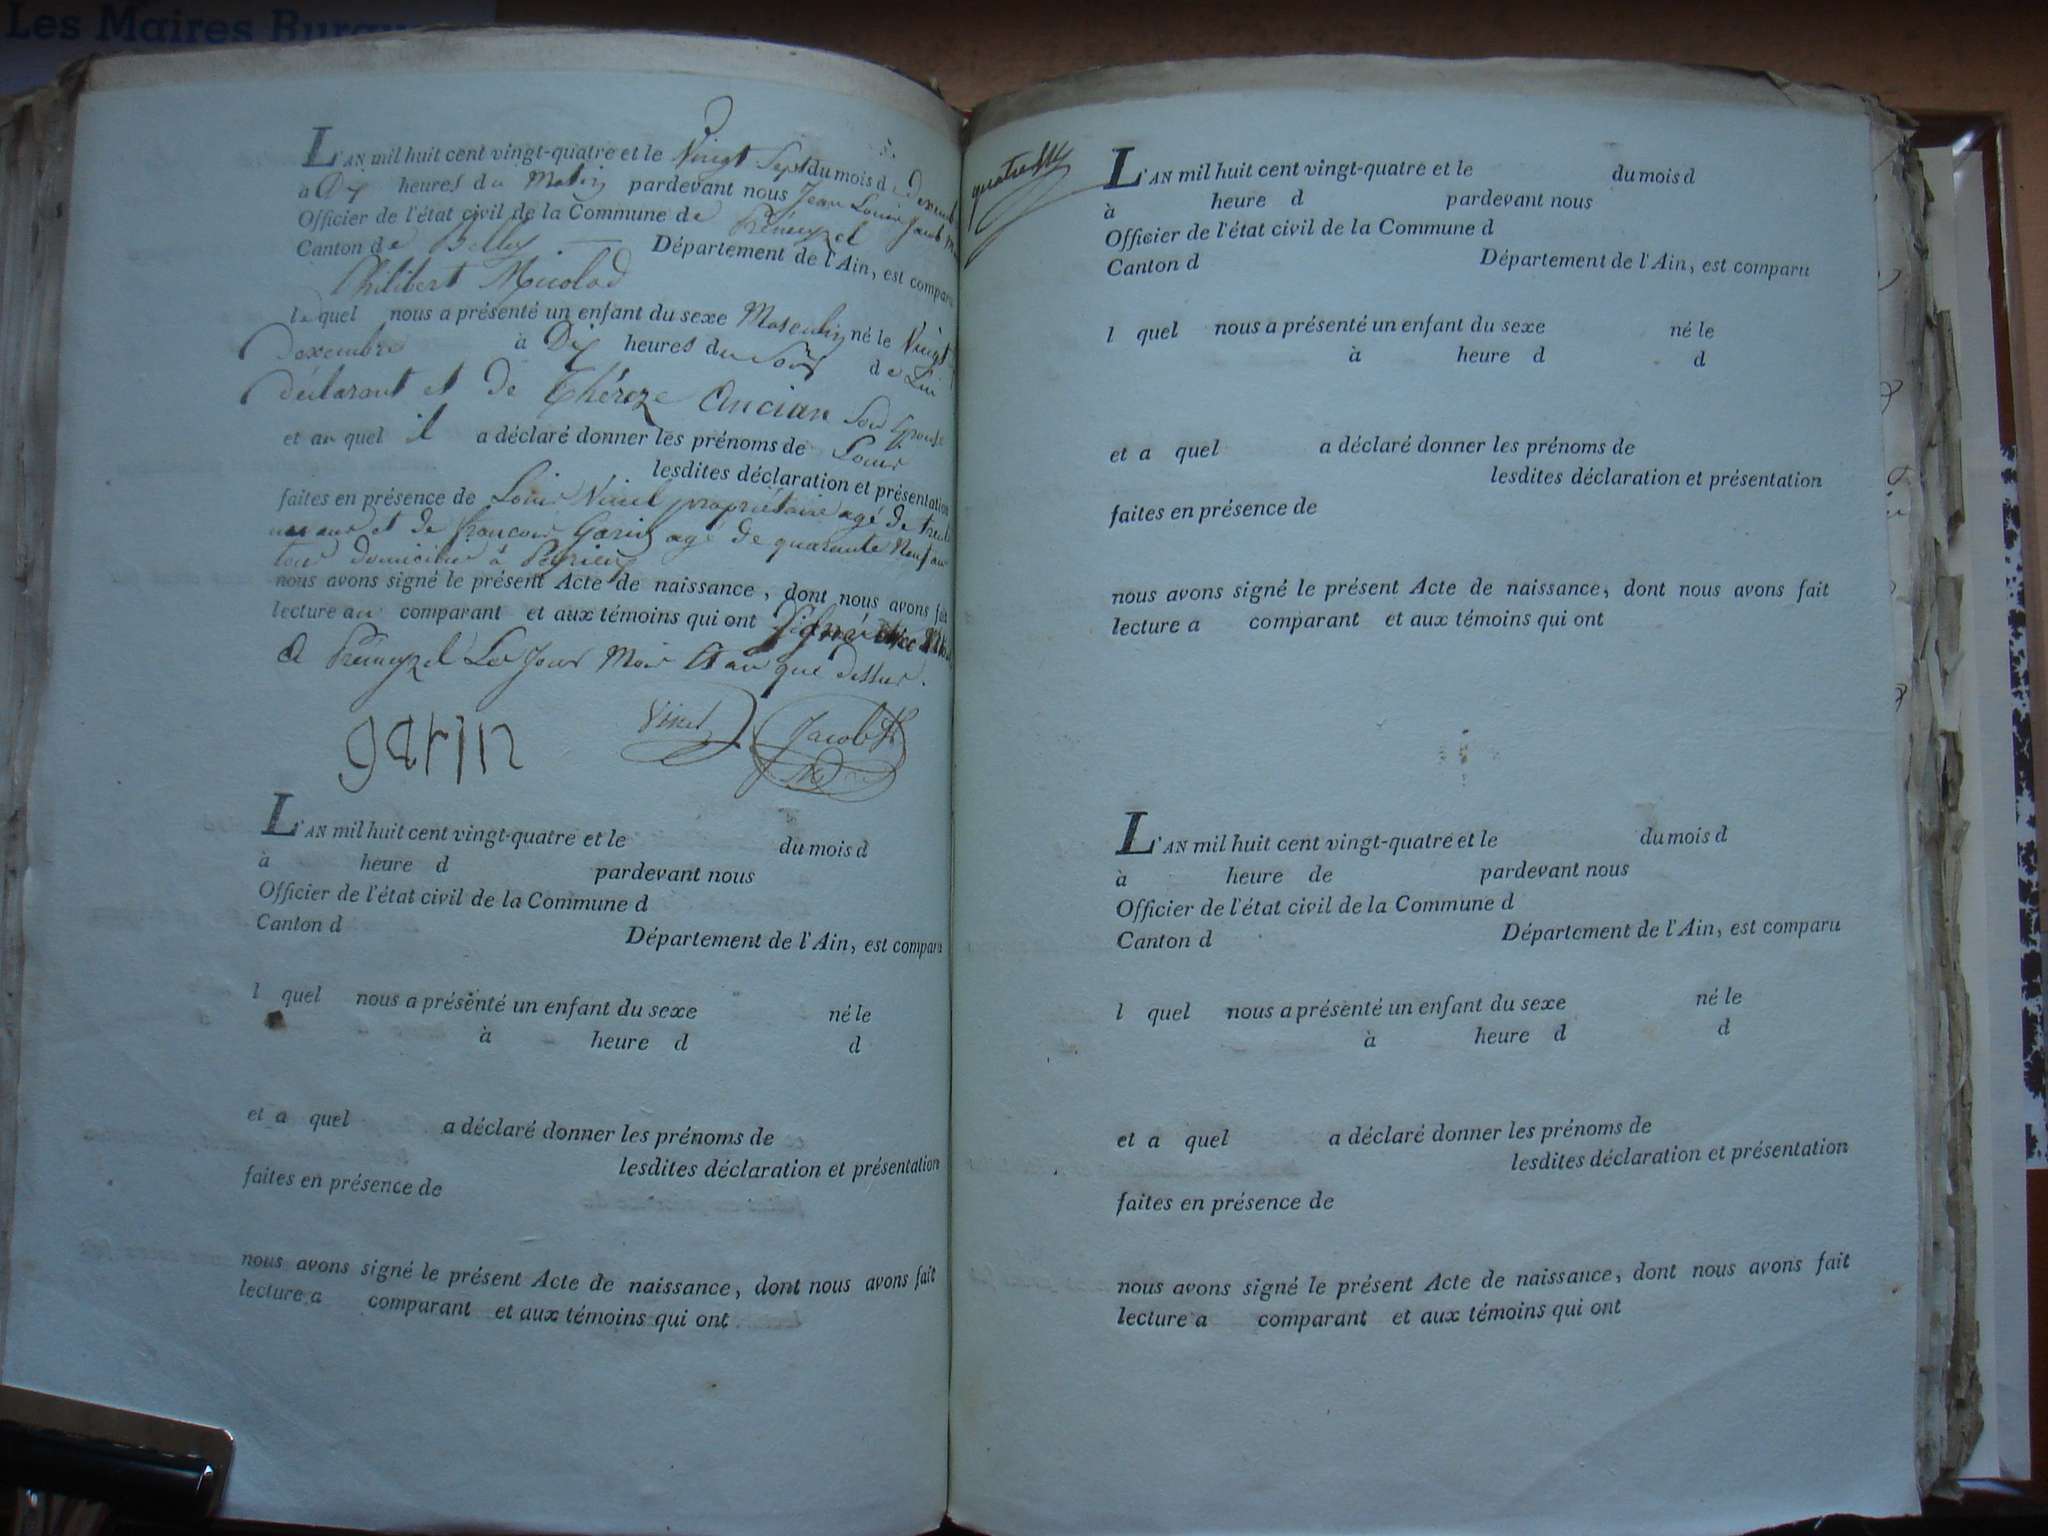 Les Maires
L'AN mil huit cent vingt-quatre et le Vingt Sept du mois de
à Dix heures du Matin pardevant nous Jean Louis Jacob
Officier de l'état civil de la Commune de Prémeyzel
Canton de Belley Département de l'Ain, est comparu
Philibert Micolod
lequel nous a présenté un enfant du sexe Masculin né le Vingt
Dexembre à Dix heures du Soir de Lui
déclarant et de Thérèze Ancian Son Epouse
et au quel il a déclaré donner les prénoms de Louis
lesdites déclaration et présentation
faites en présence de Louis Vinel propriétaire agé de trente
un ans et de françois Garin agé de quarante Neuf ans
tous domiciliés à Peyrieu
nous avons signé le présent Acte de naissance, dont nous avons fait
lecture au comparant et aux témoins qui ont Signé avec
A Prémeyzel Les Jour Mois et an que dessus.
garin Vinel Jacob
L'AN mil huit cent vingt-quatre et le du mois d
à heure d pardevant nous
Officier de l'état civil de la Commune d
Canton d Département de l'Ain, est comparu
l quel nous a présenté un enfant du sexe né le
à heure d d
et a quel a déclaré donner les prénoms de
lesdites déclaration et présentation
faites en présence de
nous avons signé le présent Acte de naissance, dont nous avons fait
lecture a comparant et aux témoins qui ont
quatre
L'AN mil huit cent vingt-quatre et le du mois d
à heure d pardevant nous
Officier de l'état civil de la Commune d
Canton d Département de l'Ain, est comparu
l quel nous a présenté un enfant du sexe né le
à heure d d
et a quel a déclaré donner les prénoms de
lesdites déclaration et présentation
faites en présence de
nous avons signé le présent Acte de naissance, dont nous avons fait
lecture a comparant et aux témoins qui ont
L'AN mil huit cent vingt-quatre et le du mois d
à heure de pardevant nous
Officier de l'état civil de la Commune d
Canton d Département de l'Ain, est comparu
l quel nous a présenté un enfant du sexe né le
à heure d d
et a quel a déclaré donner les prénoms de
lesdites déclaration et présentation
faites en présence de
nous avons signé le présent Acte de naissance, dont nous avons fait
lecture a comparant et aux témoins qui ont